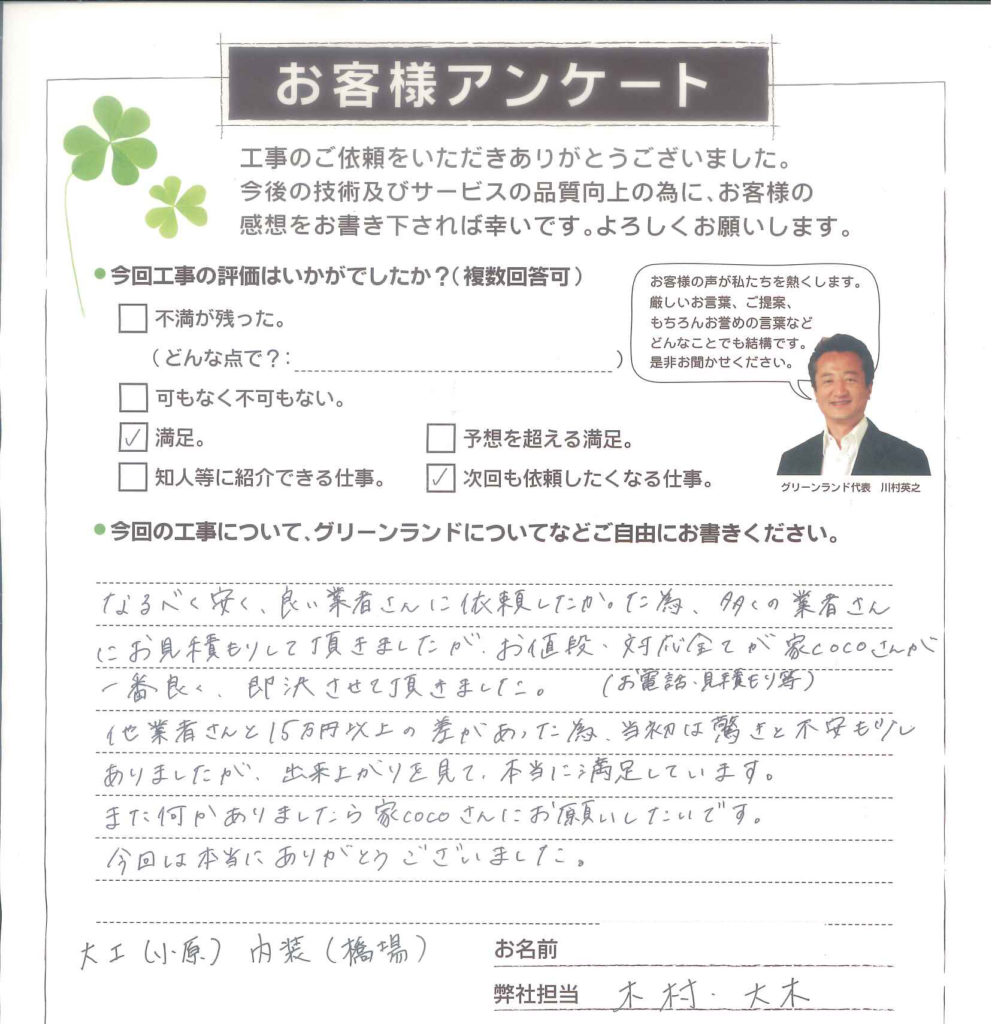 お客様アンケート
工事のご依頼をいただきありがとうございました。
今後の技術及びサービスの品質向上の為に、お客様の
感想をお書き下されば幸いです。よろしくお願いします。
●今回工事の評価はいかがでしたか？（複数回答可）
お客様の声が私たちを熱くします。
厳しいお言葉、ご提案、
もちろんお誉めの言葉など
どんなことでも結構です。
是非お聞かせください。
グリーンランド代表　川村英之
□ 不満が残った。
（どんな点で？：　　　　）
□ 可もなく不可もない。
☑ 満足。　□ 予想を超える満足。
□ 知人等に紹介できる仕事。　☑ 次回も依頼したくなる仕事。
●今回の工事について、グリーンランドについてなどご自由にお書きください。
なるべく安く、良い業者さんに依頼したかった為、多くの業者さん
にお見積もりして頂きましたが、お値段・対応全てが家cocoさんが
一番良く、即決させて頂きました。（お電話・見積もり等）
他業者さんと15万円以上の差があった為、当初は驚きと不安も少し
ありましたが、出来上がりを見て、本当に満足しています。
また何かありましたら家cocoさんにお願いしたいです。
今回は本当にありがとうございました。
大工（小原）　内装（橋場）
お名前
弊社担当　木村・大木